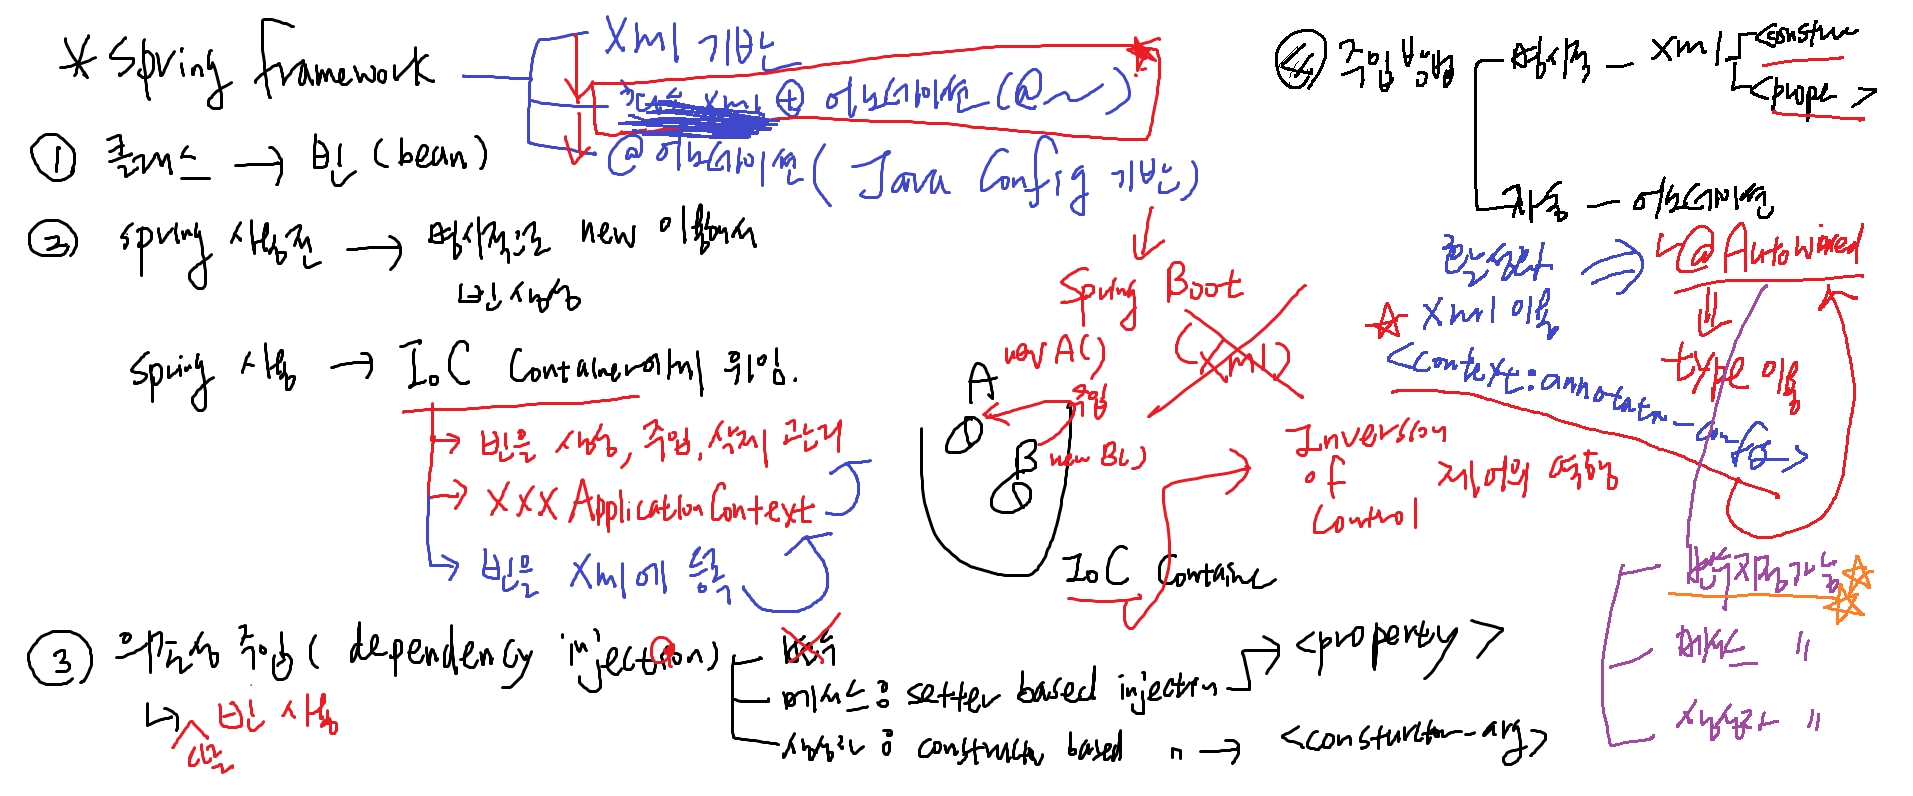 * Spring framework
xml 기반
xml + 어노테이션(@~)
@어노테이션( Java Config 기반)
Spring Boot
(xml)
① 클래스 → 빈 (bean)
② spring 사용전 → 명시적으로 new 이용해서
빈 생성
spring 사용 → IoC Container에게 위임.
→ 빈을 생성, 주입, 삭제 관리
→ XXX ApplicationContext
→ 빈을 xml에 등록
new A()
A
주입
B
new B()
IoC Containe
Inversion
of
Control
제어의 역행
③ 의존성 주입( dependency injection)
빈 사용
다른
변수
메서드 : setter based injection → <property>
생성자 : constructor based " → <consturctor-arg>
④ 주입방법
명시적 - xml
<constur
<prope >
자동 - 어노테이션
@Autowired
type 이용
활성화
xml 이용
<context:annotatn-config>
변수지정가능
메서드 "
생성자 "